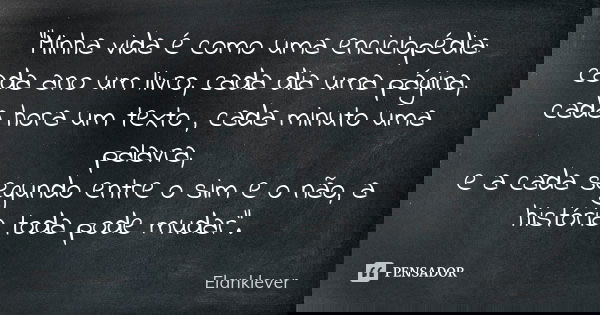 "Minha vida é como uma enciclopédia:
cada ano um livro, cada dia uma página,
cada hora um texto , cada minuto uma
palavra,
e a cada segundo entre o sim e o não, a
história toda pode mudar".
Elanklever
PENSADOR